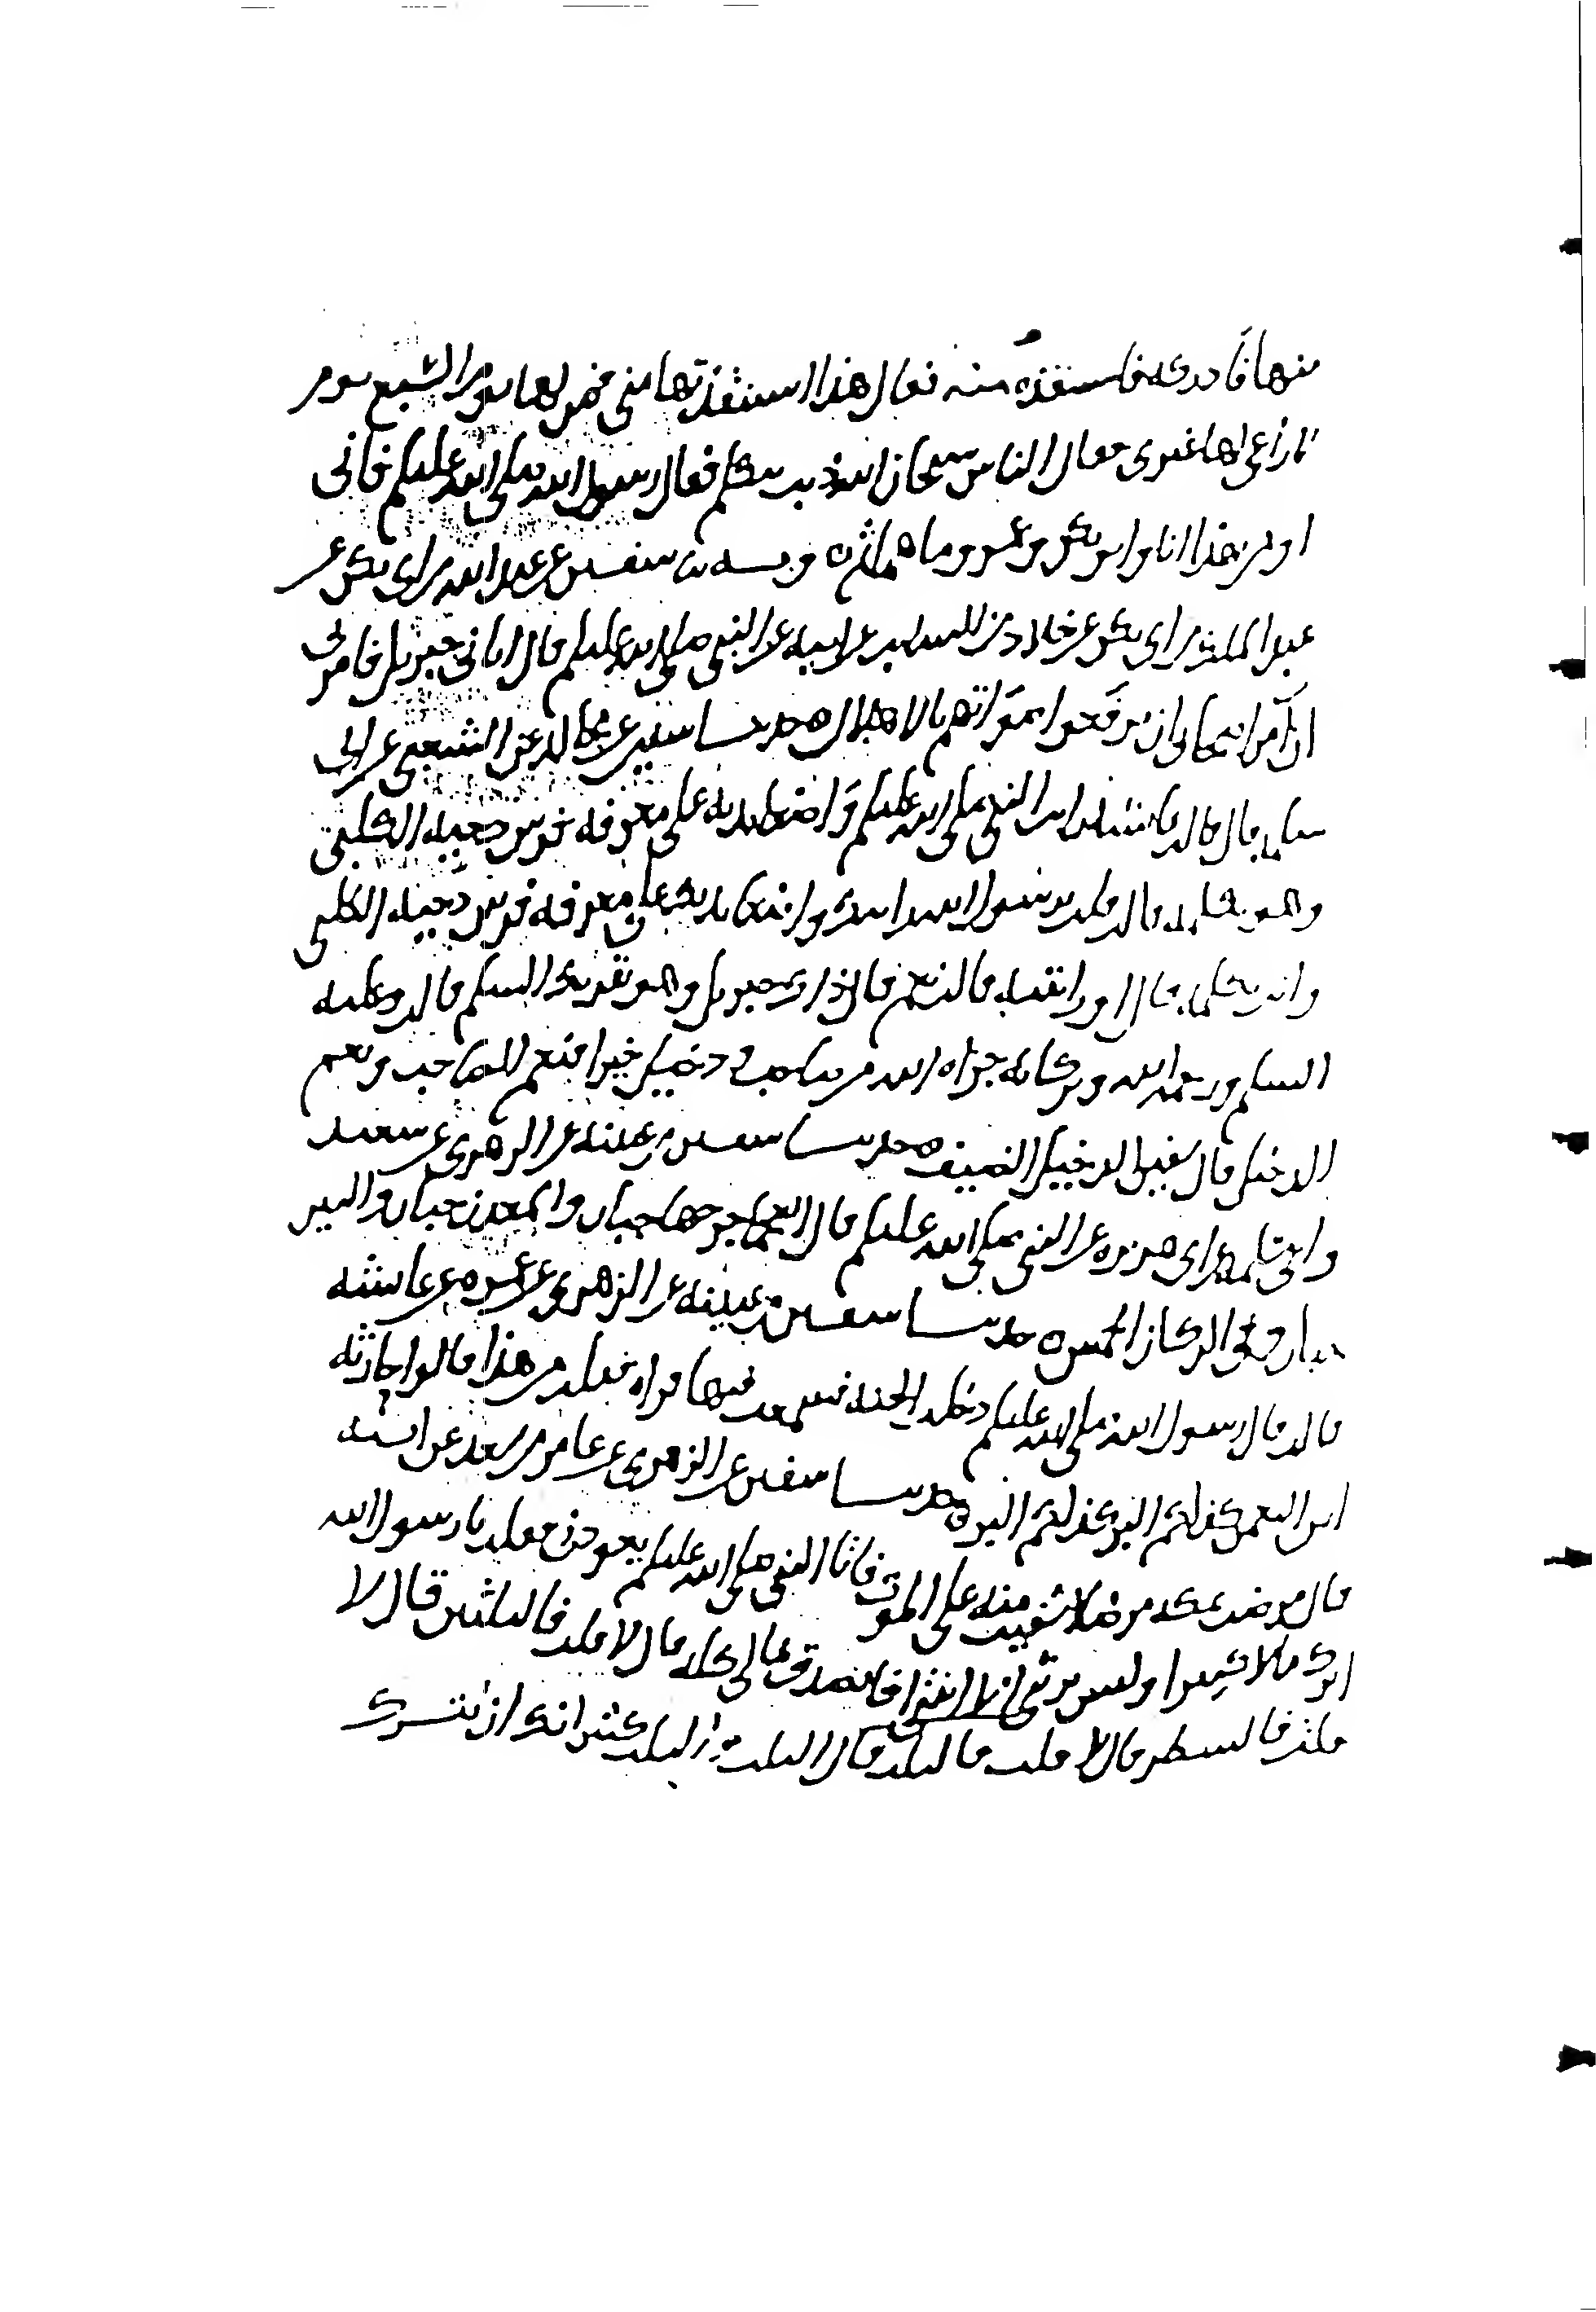 منها فادركه فاستنقذه منه فقال هذا استنقذتها منى فمن لها يوم السبع يوم
لا راعى لها غيرى فقال الناس سبحان الله ذيب يتكلم فقال رسول الله صلى الله عليه وسلم فانى
اومن بهذا انا وابو بكر وعمر وما هما ثم وبه ثنا سفين عن عبد الله بن ابى بكر عن
عبد الملك بن ابى بكر عن خلاد بن السايب عن ابيه عن النبى صلى الله عليه وسلم قال اتانى جبريل فامرنى
ان آمر اصحابى ان يرفعوا اصواتهم بالاهلال حدثنا سفين عن مجالد عن الشعبى عن ابى
سلمة قال قالت عائشة رايت النبى صلى الله عليه وسلم واضعا يديه على معرفة فرس دحية الكلبى
وهو يكلمه قالت قلت يرسول الله رايتك واضعا يديك على معرفة فرس دحية الكلبى
وانت تكلمه قال او رايتيه قالت نعم قال ذاك جبريل وهو يقريك السلم قالت وعليه
السلم ورحمة الله وبركاته جزاه الله من صاحب ودخيل خيرا فنعم الصاحب ونعم
الدخيل قال سفين الدخيل الضيف حدثنا سفين بن عيينة عن الزهرى عن سعيد
وابى سلمة عن ابى هريرة عن النبى صلى الله عليه وسلم قال العجما جرحها جبار والمعدن جبار والبير
جبار وفى الركاز الخمس حدثنا سفين بن عيينة عن الزهرى عن عمرة عن عائشة
قالت قال رسول الله صلى الله عليه وسلم دخلت الجنة فسمعت فيها قراة فقلت من هذا قالوا حارثة
ابن النعمن كذلكم البر كذلكم البر حدثنا سفين عن الزهرى عن عامر بن سعد عن ابيه
قال مرضت بمكة مرضا اشفيت منه على الموت فاتانى النبى صلى الله عليه وسلم يعودنى فقلت يا رسول الله
اترك مالا كثيرا وليس يرثنى الا ابنتى افاتصدق بمالى كله قال لا قلت فالثلثين قال لا
قلت فالشطر قال لا قلت فالثلث قال الثلث والثلث كثير انك ان تترك